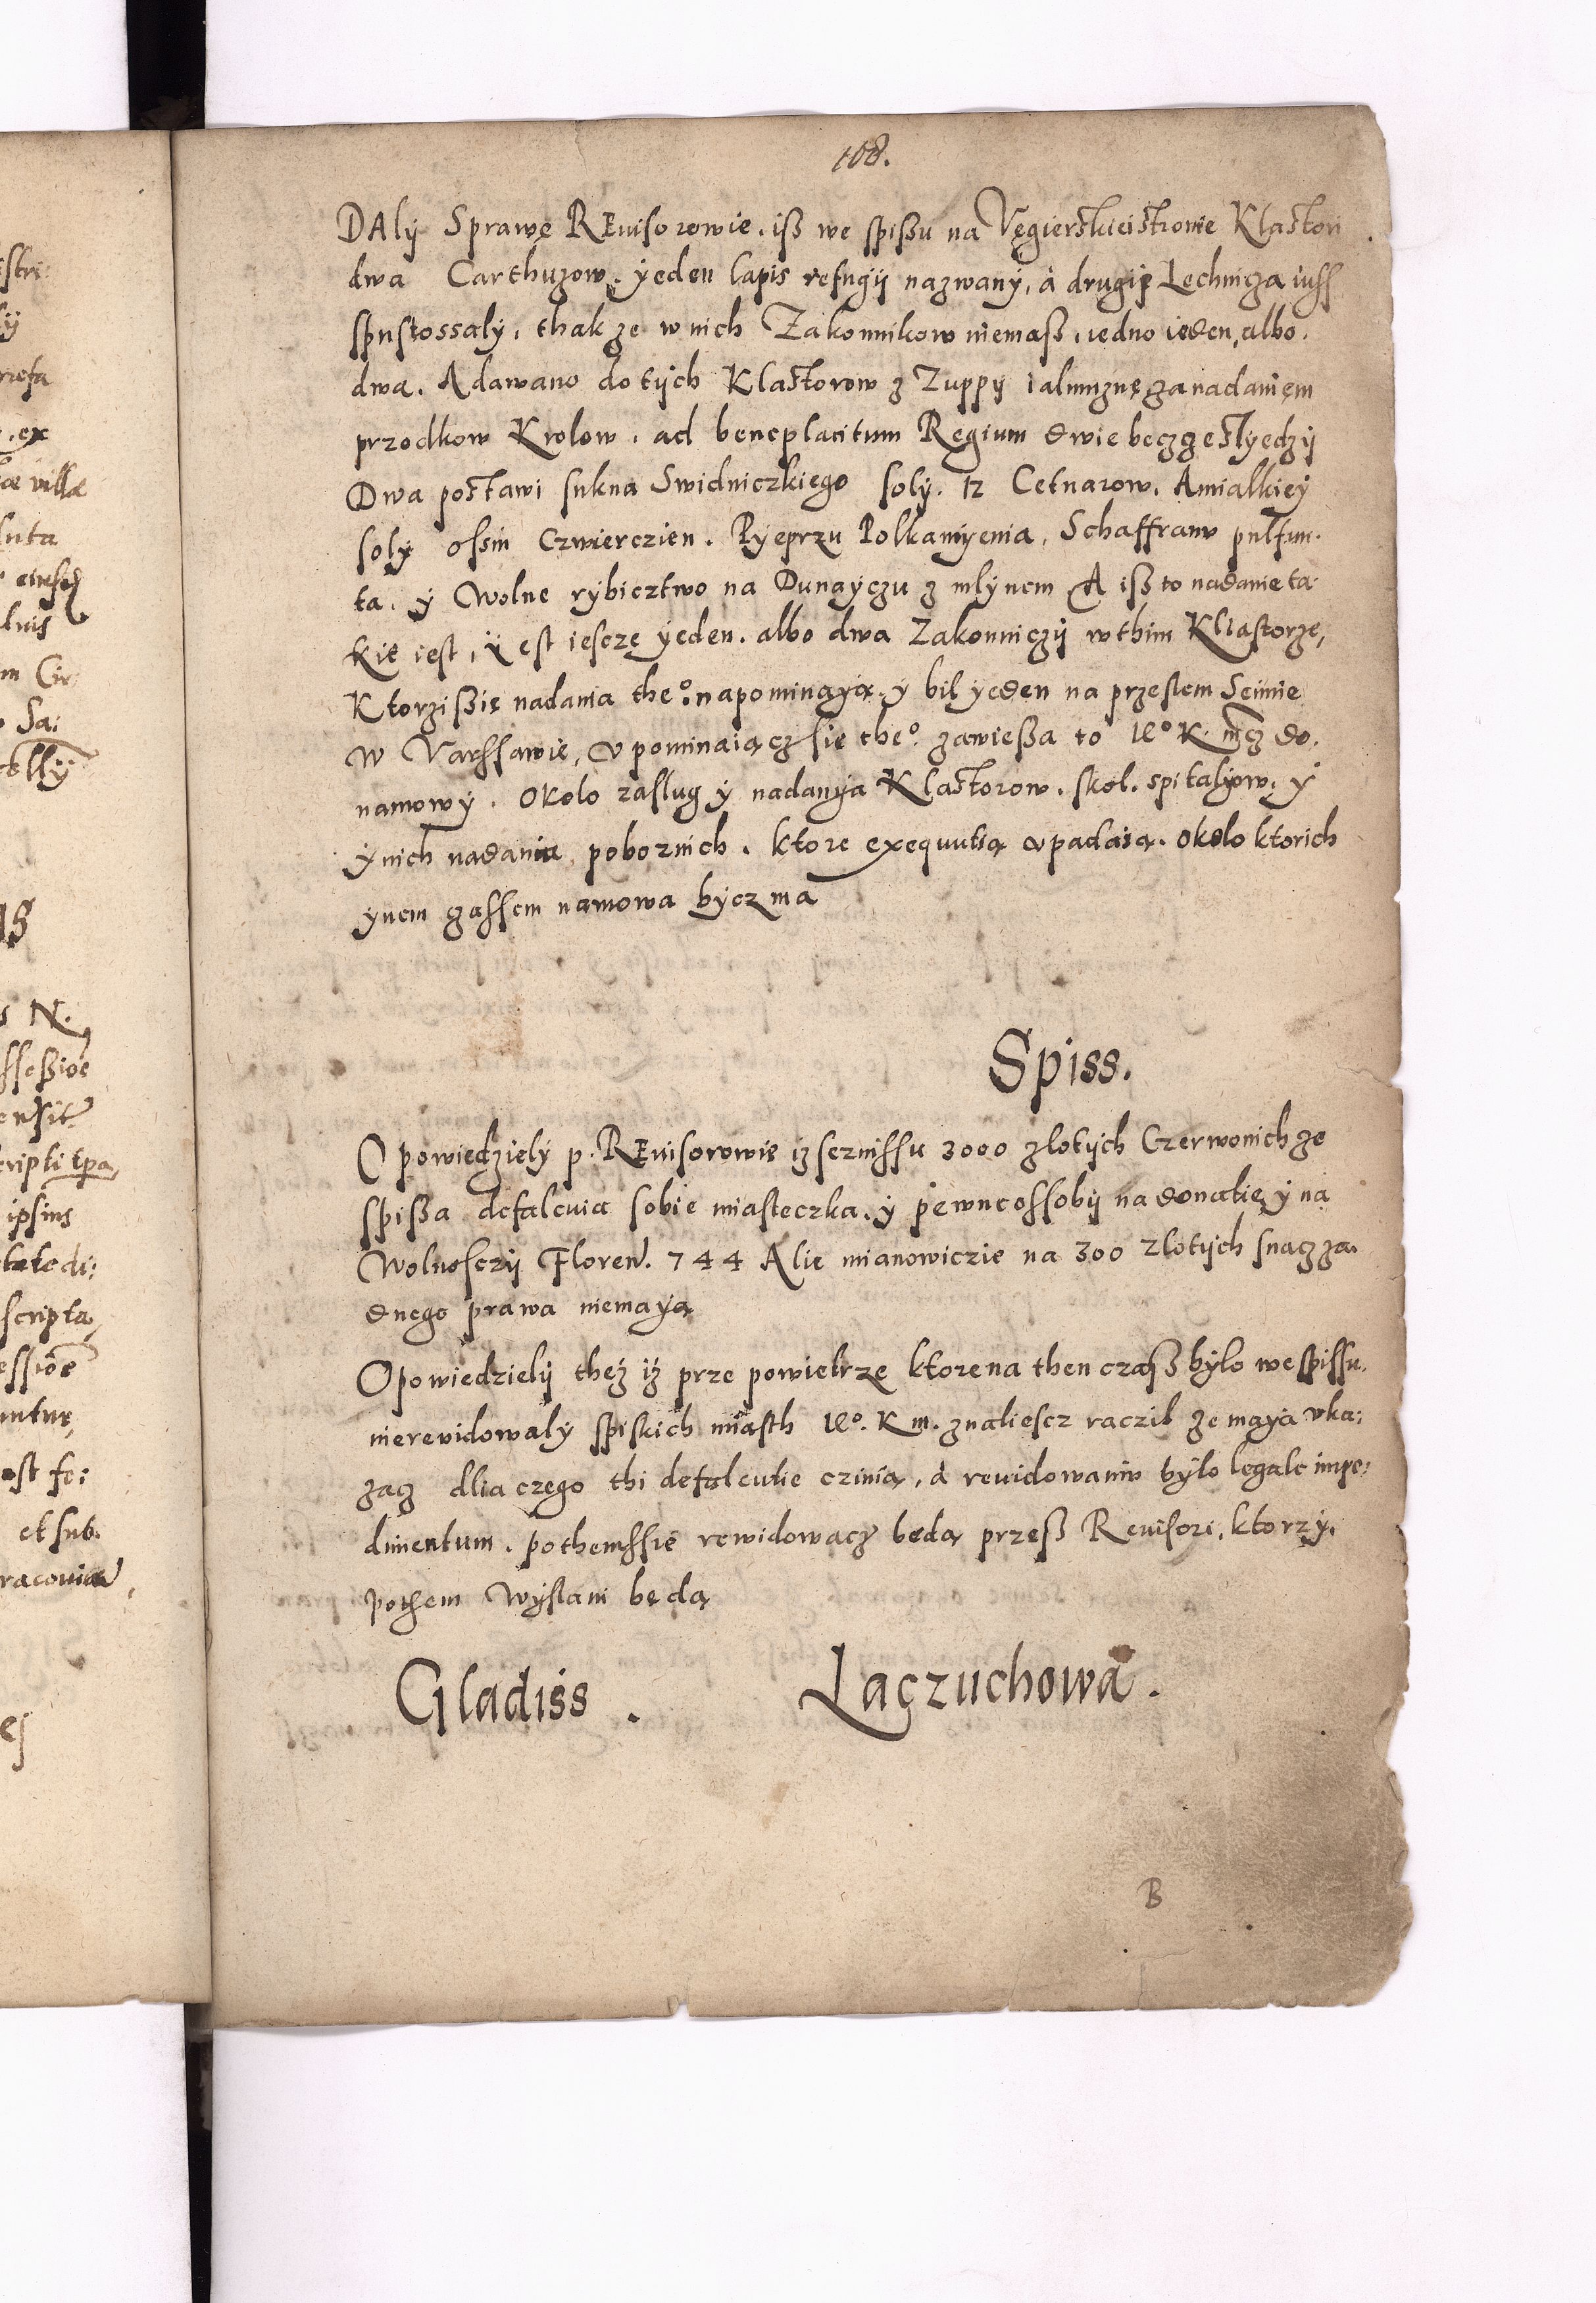 108.
DAlÿ Sprawę REuisorowie. iß we spißu na Vęgierskieistronie Klastori
dwa Carthuzow. yeden lapis refugÿ nazwanÿ, à drugiÿ Lechnicza iuss
spustossalÿ, thak ze w nich Zakonnikow niemaß, iedno ieden, albo.
dwa. A dawano do tÿch Klastorow z Zuppÿ ialmuznę za nadaniem
przodkow Krolow. ad beneplacitum Regium dwie beczge slyedzÿ
Dwa postawi sukna Swidniczkiego solÿ. 12 Cetnarow. A mialkieÿ
solÿ ossm Czwierczien. Pÿeprzu Polkamÿenia, Schaffranu pulfun.
ta. ÿ Wolne rÿbicztwo na Dunaÿczu z mlÿnem A iß to nadanie ta
kie iest, ÿ est iescze ÿeden. albo dwa Zakonniczÿ wthim Kliastorze,
Ktorzi ßię nadania the°. napominaÿą. ÿ bil ÿeden na przeslem Seimie
w Varssawie, vpominaiącz się the°. zawießa to Ie° K. mcz do.
namowÿ. Okolo zaslug ÿ nadanÿa Klastorow. skol. spitalÿow. ÿ
ÿnich nadania poboznich. ktore exequutią vpadaią. Okolo ktorich
ÿnem zassem namowa bÿcz ma
Spiss.
Opowiedzielÿ p. REuisorowie iz sczinssu 3000 zlotÿch Czerwonich ze
spißa defalcuia sobie miasteczka. ÿ pewne ossobÿ na donatię ÿ na
Wolnosczÿ Floren. 744 A lie mianowiczie na 300 zlotÿch snacz za.
dnego prawa niemaÿą
Opowiedzielÿ thez iz prze powietrze ktore na then czaß bÿlo we spissu.
nierewidowalÿ spiskich miasth Ie°. K m. znaliescz raczil ze maÿa vka:
zacz dlia czego thi defalcutie czinią, à reuidowaniu bÿlo legale impe:
dimentum. pothemssię rewidowacz będą przeß Reuisori, ktorzÿ.
pothem wÿslani będą
Gladiss.
Laczuchowa.
B